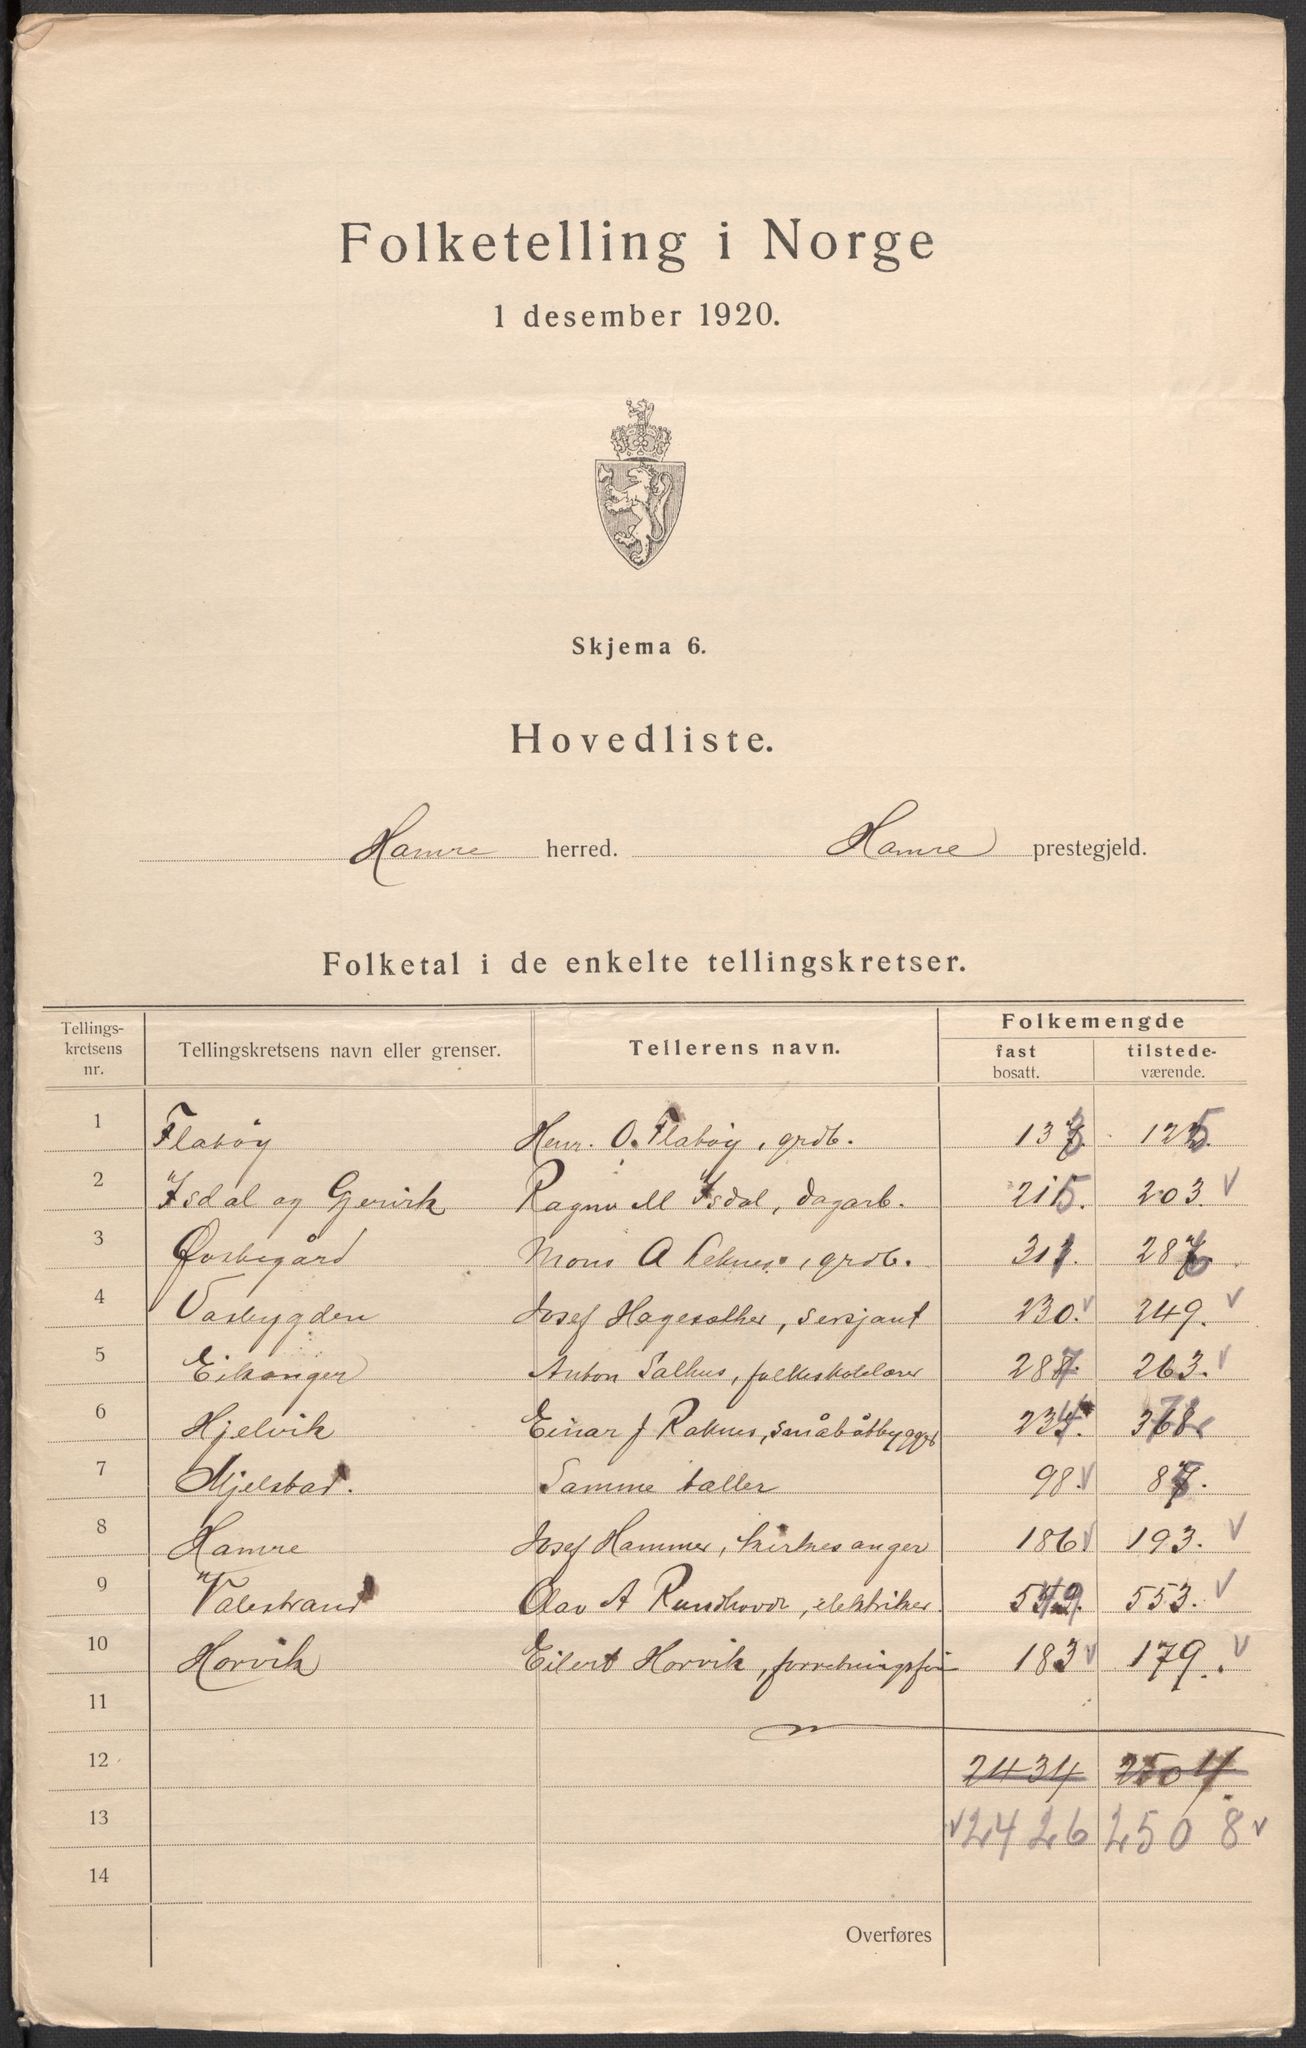 Folketelling i Norge
1 desember 1920.
Skjema 6.
Hovedliste.
Hamre herred. Hamre prestegjeld.
Folketal i de enkelte tellingskretser.
Tellings-
kretsens
nr.
Tellingskretsens navn eller grenser.
Tellerens navn.
Folkemengde
fast
bosatt.
tilstede-
værende.
1 Flatøy Henr. O. Flatøy, grdb. 125
2 Isdal og Gervik Ragnv M Isdal, dagarb. 215. 203. v
3 Mons A Leknes, grdb. 286
4 Vasbygden Josef Hagesæther, sersjant 230. v 249. v
5 Eikanger Anton Salhus, folkeskolelærer 287. 263. v
6 Hjelvik Einar J Raknes, småbåtbyggr 234.
7 Mjelstad. Samme tæller 98. v
8 Hamre Josef Hammer, kirkesanger 186 v 193. v
9 Valestrand Olav A Rundhovde, elektriker 549. 553. v
10 Horvik Eilert Horvik, forretningsfør 183 v 179. v
11
12 2434 2504
13 v 2426 2508 v
14
Overføres